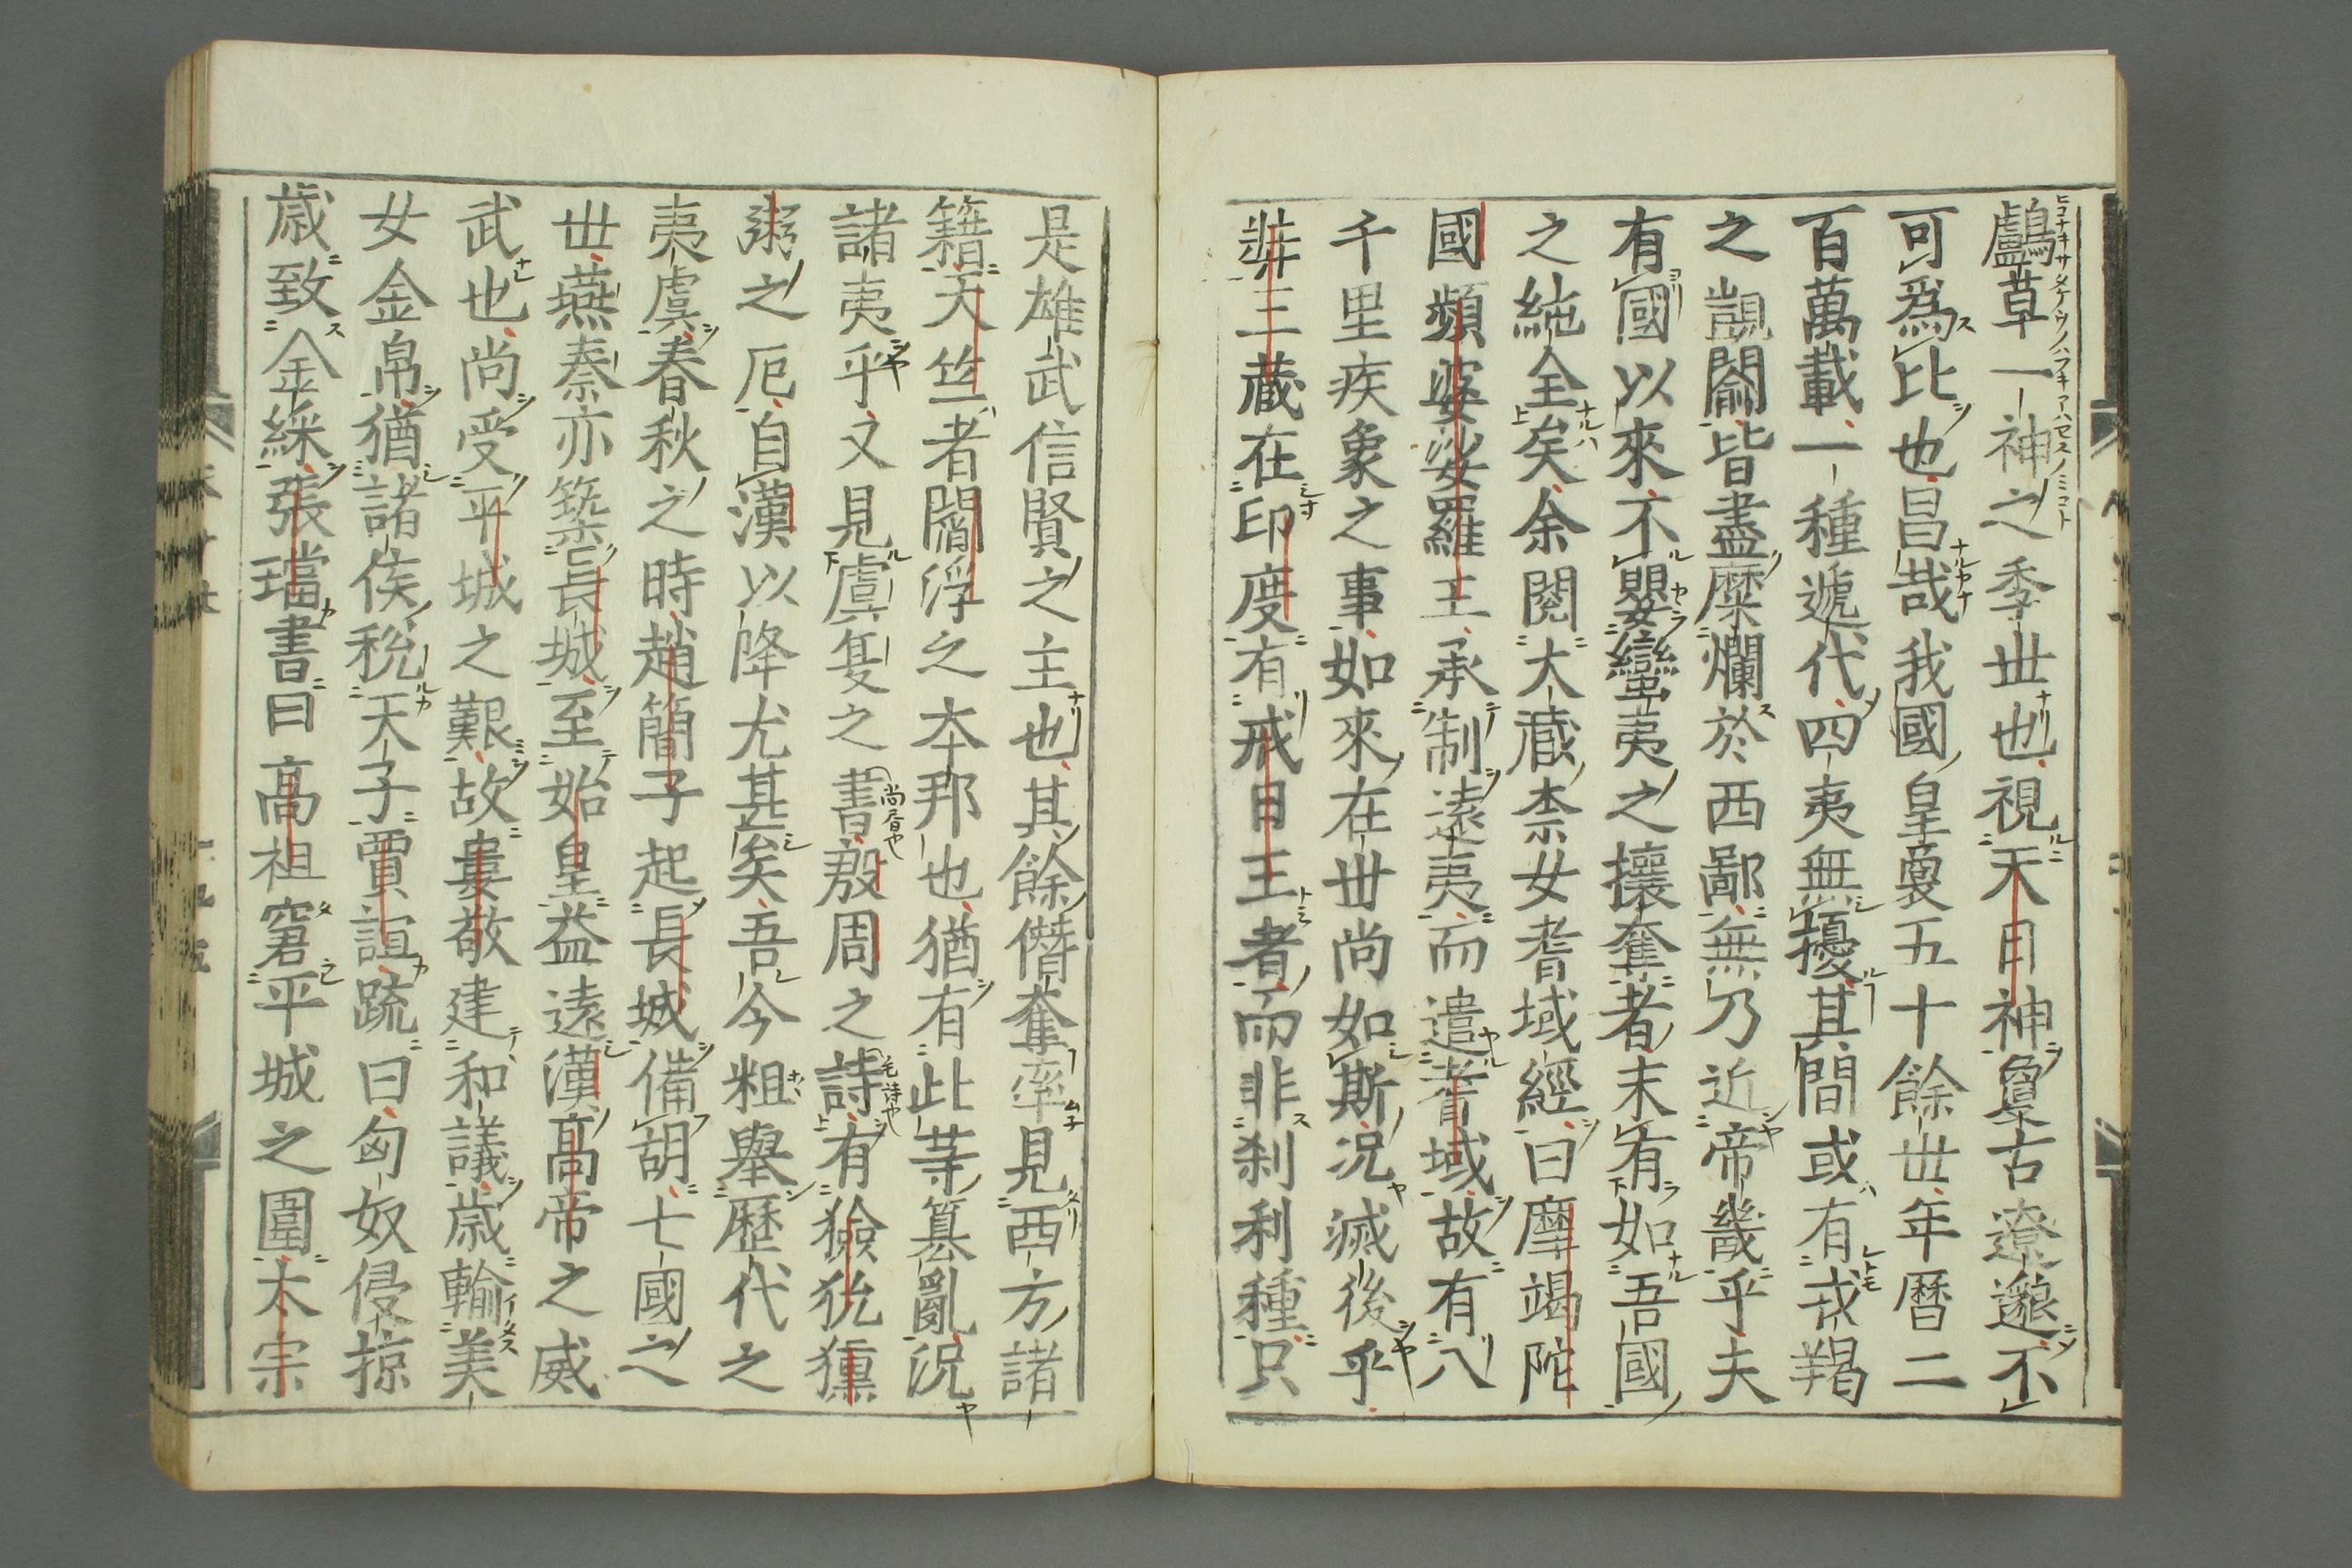 鸕草一神之季世也視天日神敻古遼邈不
可爲比也昌哉我國皇胤五十餘世年曆二
百萬載一種遞代四夷無擾其間或有戎羯
之覬覦皆盡糜爛於西鄙無乃近帝畿乎夫
有國以來不嬰蠻夷之攘奪者末有如吾國
之純全矣余閱大藏柰女耆域經曰摩竭陀
國頻婆娑羅王承制遠夷而遣耆域故有八
千里疾象之事如來在世尚如斯況滅後乎
奘三藏在印度有戒日王者而非刹利種只
是雄武信賢之主也其餘僭奪率見西方諸
籍天竺者閻浮之本邦也猶有此等簒亂況
諸夷乎又見虞夏之書殷周之詩有獫狁獯
粥之厄自漢以降尤甚矣吾今粗舉歷代之
夷虞春秋之時趙簡子起長城備胡七國之
世燕秦亦築長城至始皇益遠漢高帝之威
武也尚受平城之艱故婁敬建和議歲輸美
女金帛猶諸侯稅天子賈誼疏曰匈奴侵掠
歲致金綵張璫書曰高祖窘平城之圍太宗
ヒコナキサタケウノハフキアハセスノミコト
尚書也
毛詩也